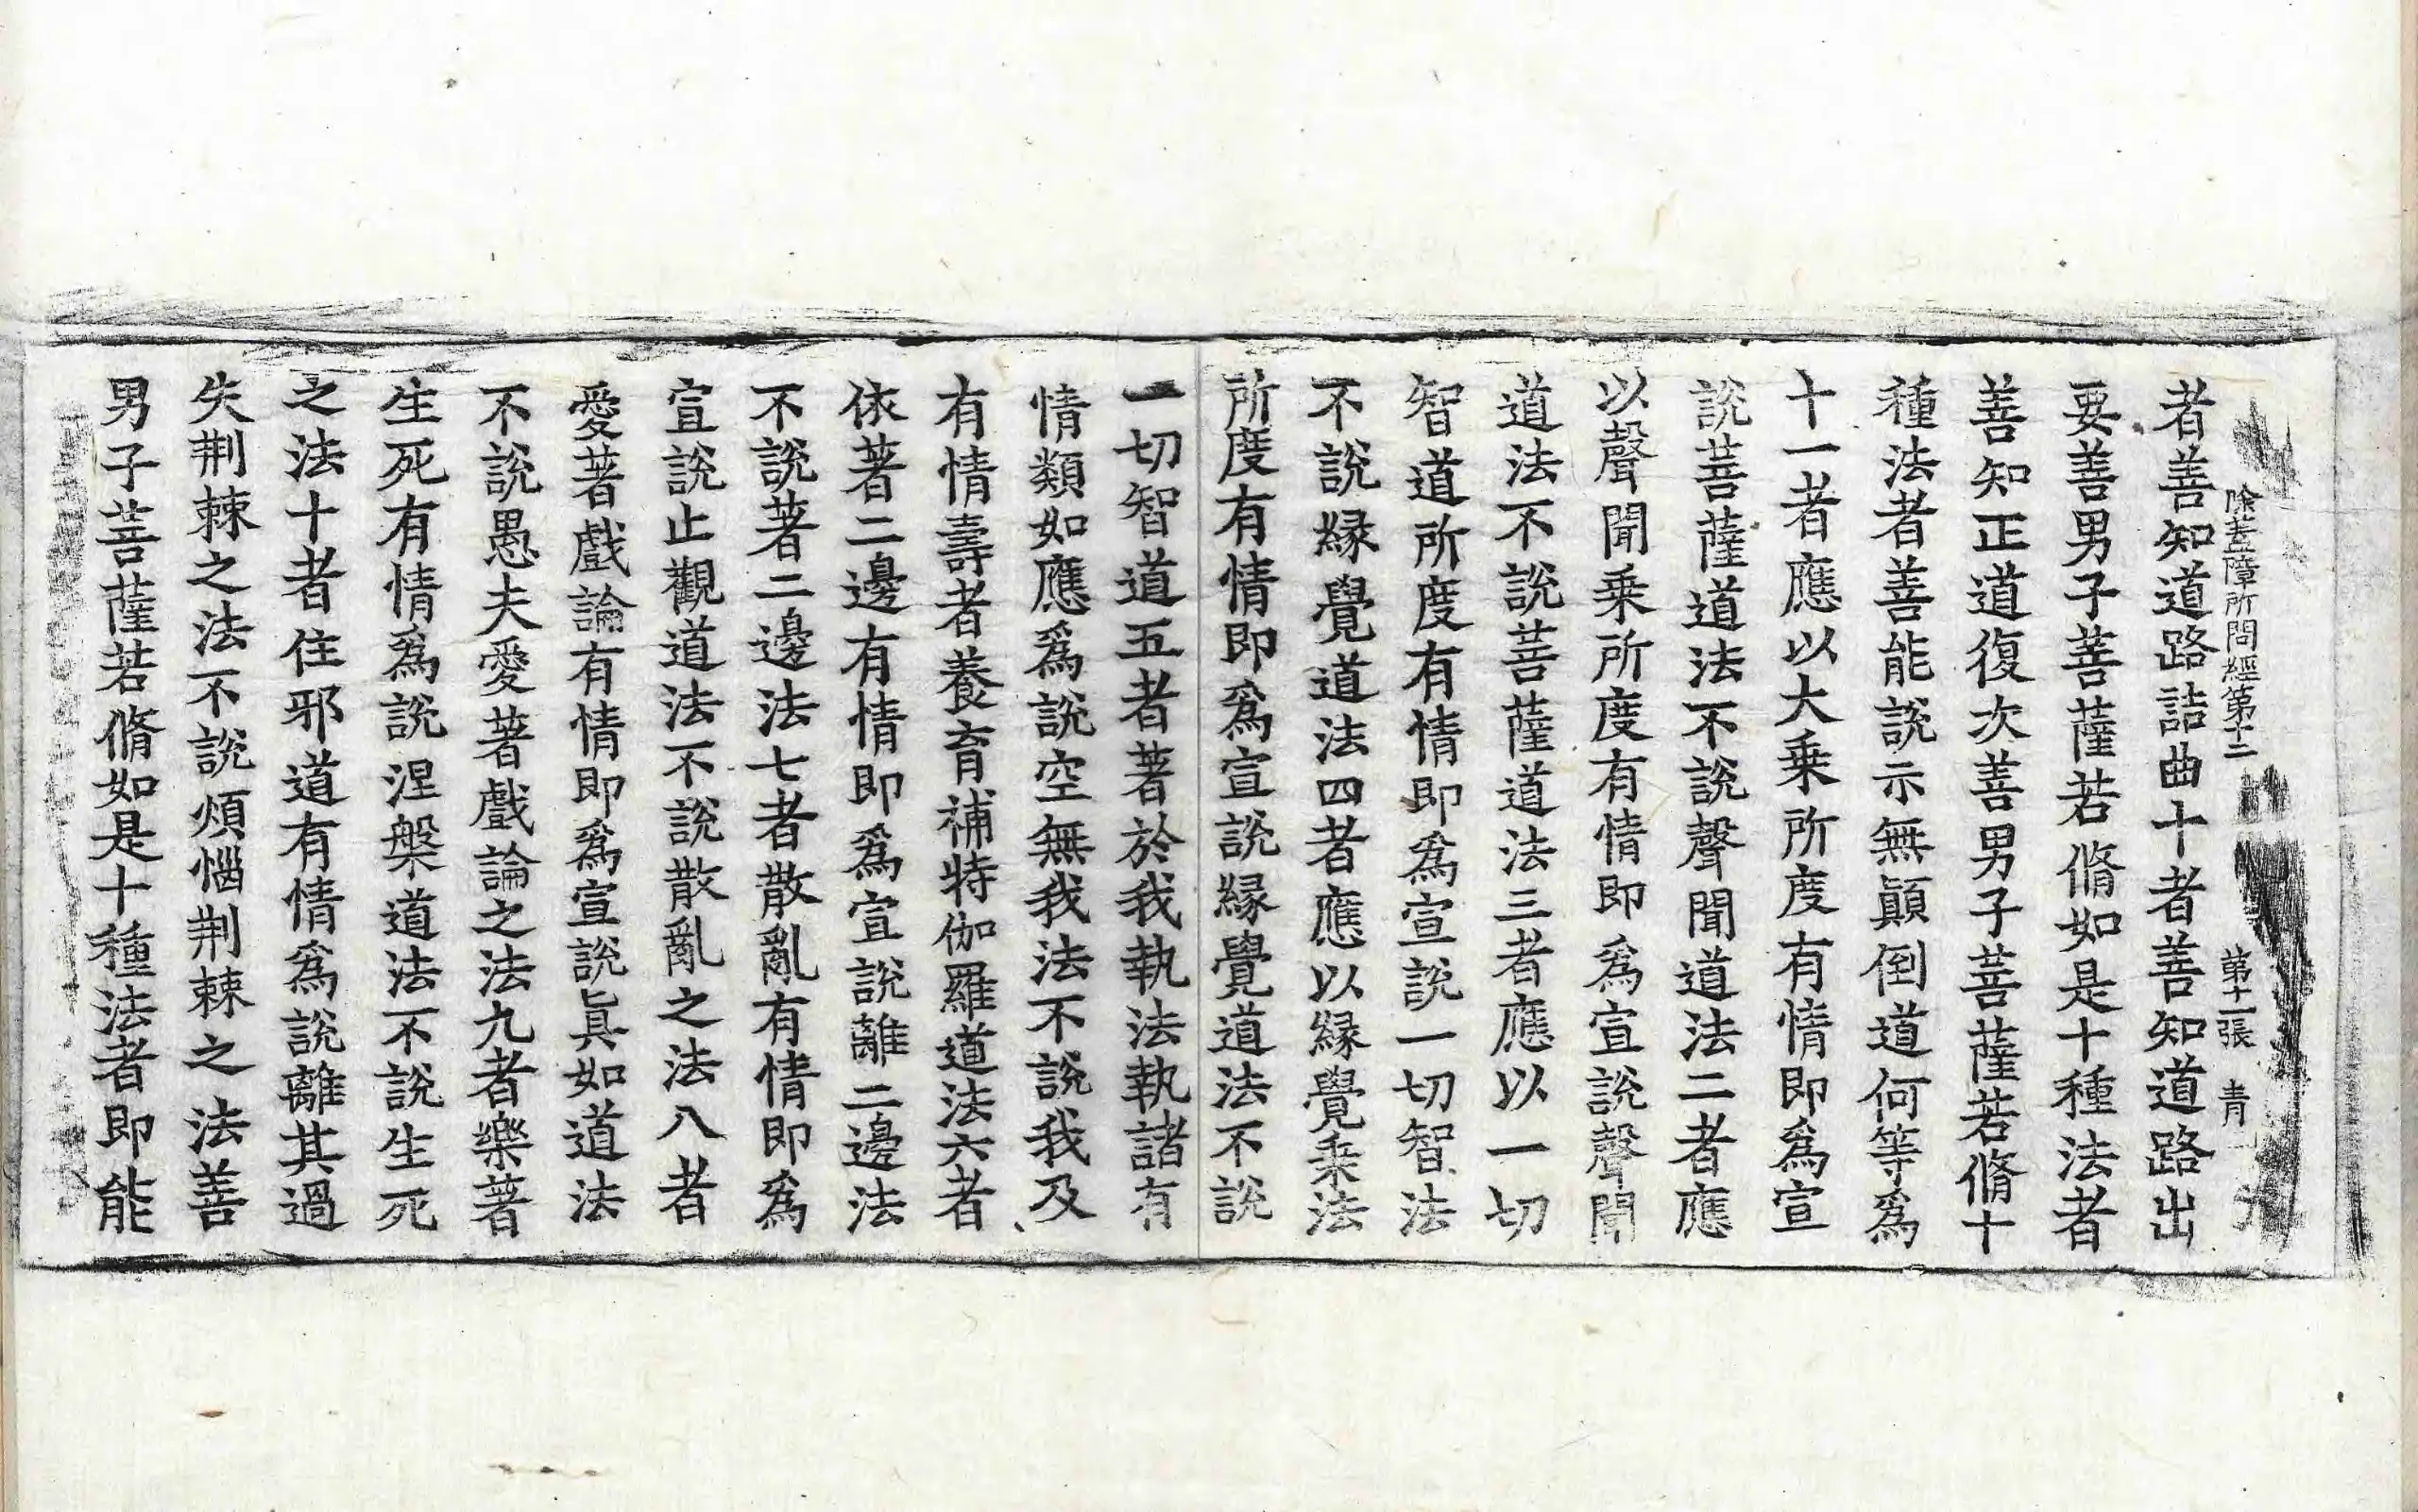 除蓋障所問經第十二 第十二張 青
者善知道路詰曲十者善知道路出
要善男子菩薩若脩如是十種法者
善知正道復次善男子菩薩若脩十
種法者善能說示無顚倒道何等爲
十一者應以大乗所度有情即爲宣
說菩薩道法不說聲聞道法二者應
以聲聞乗所度有情即爲宣說聲聞
道法不說菩薩道法三者應以一切
智道所度有情即爲宣說一切智法
不說縁覺道法四者應以縁覺乗法
所度有情即爲宣說縁覺道法不說
一切智道五者著於我執法執諸有
情類如應爲說空無我法不說我及
有情壽者養育補特伽羅道法六者
依著二邊有情即爲宣說離二邊法
不說著二邊法七者散亂有情即爲
宣說止觀道法不說散亂之法八者
愛著戲論有情即爲宣說眞如道法
不說愚夫愛著戲論之法九者樂著
生死有情爲說涅槃道法不說生死
之法十者住邪道有情爲說離其過
失荆棘之法不說煩惱荆棘之法善
男子菩薩若脩如是十種法者即能